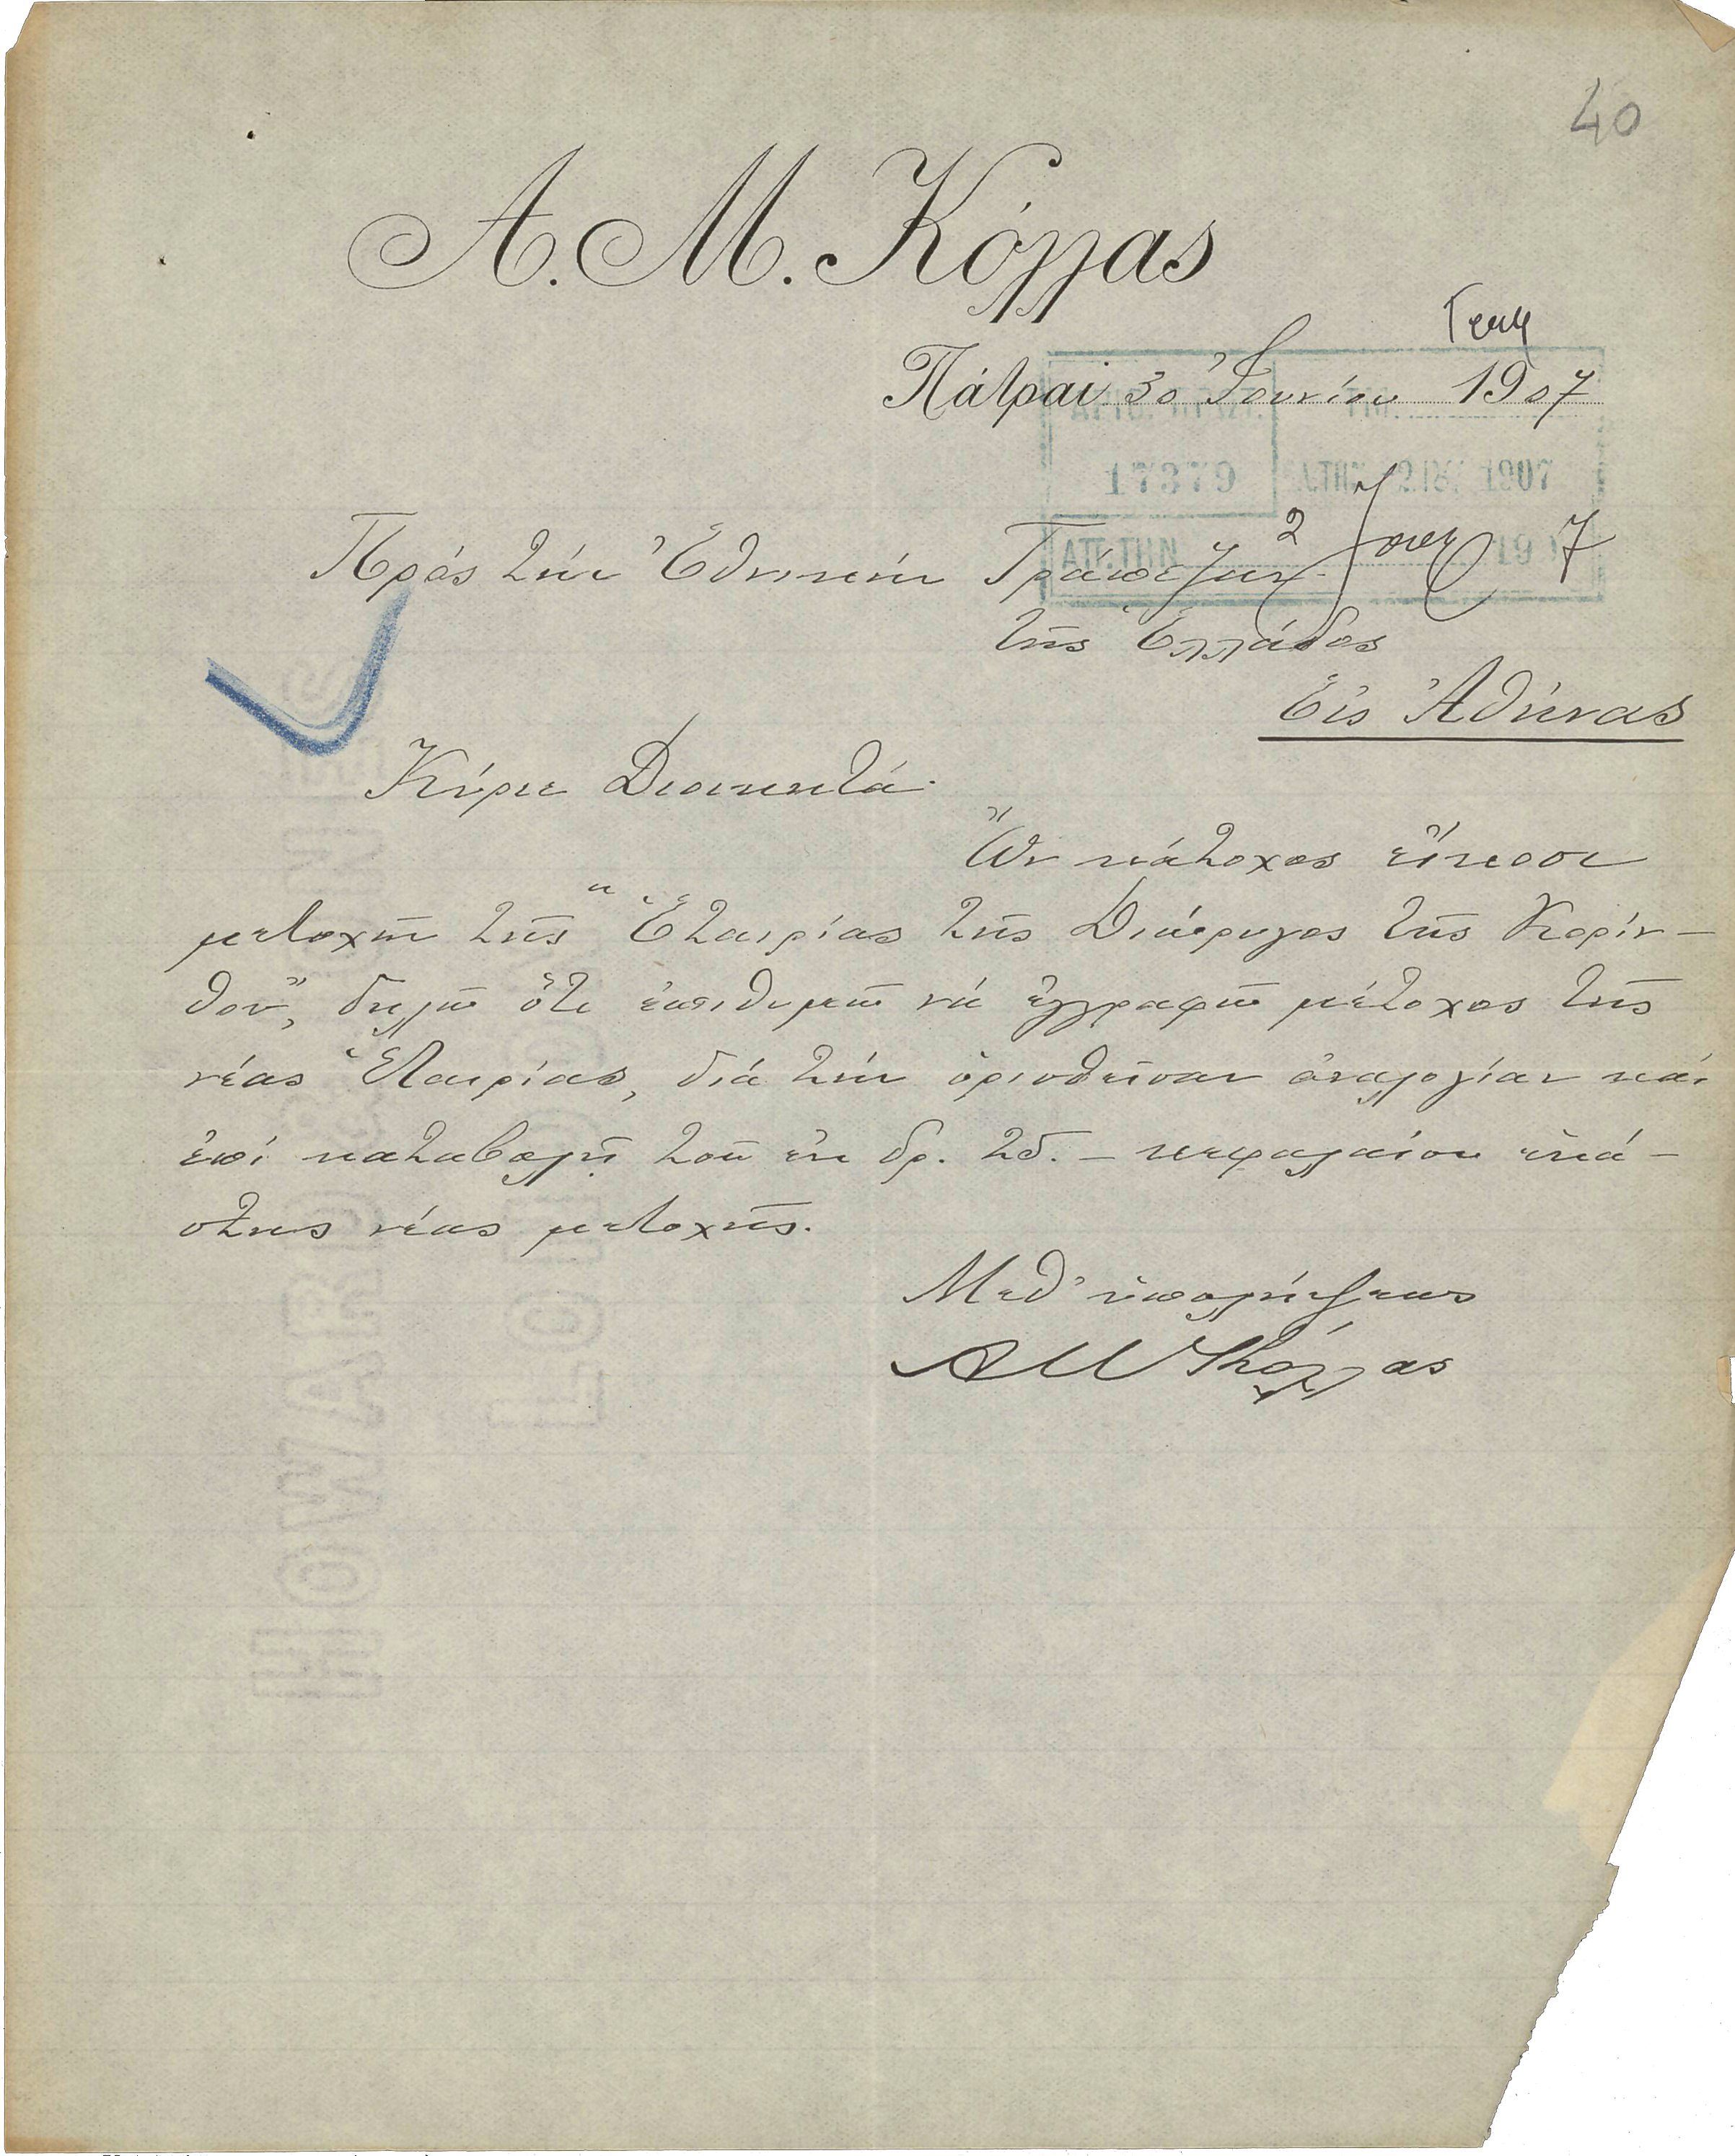 40
Α. Μ. Κόλλας
Πάτραι 30 Ἰουνίου 1907
17379 1907
ΑΠ. ΤΗΝ 2 1907
Πρός τήν Ἐθνικήν Τράπεζαν
τῆς Ἑλλάδος
Εἰς Ἀθήνας
Κύριε Διοικητά.
Ὢν κάτοχος εἴκοσι
μετοχῶν τῆς "Ἑταιρίας τῆς Διώρυγος τῆς Κορίν-
θου", δηλῶ ὅτι ἐπιθυμῶ νά ἐγγραφῶ μέτοχος τῆς
νέας Ἑταιρίας, διά τήν ὁρισθεῖσαν ἀναλογίαν καί
ἐπί καταβολῇ τοῦ ἐκ δρ. 25.- κεφαλαίου ἑκά-
στης νέας μετοχῆς.
Μεθ' ὑπολήψεως
ΑΜ Κόλλας
HOWARD & JONES
LONDON